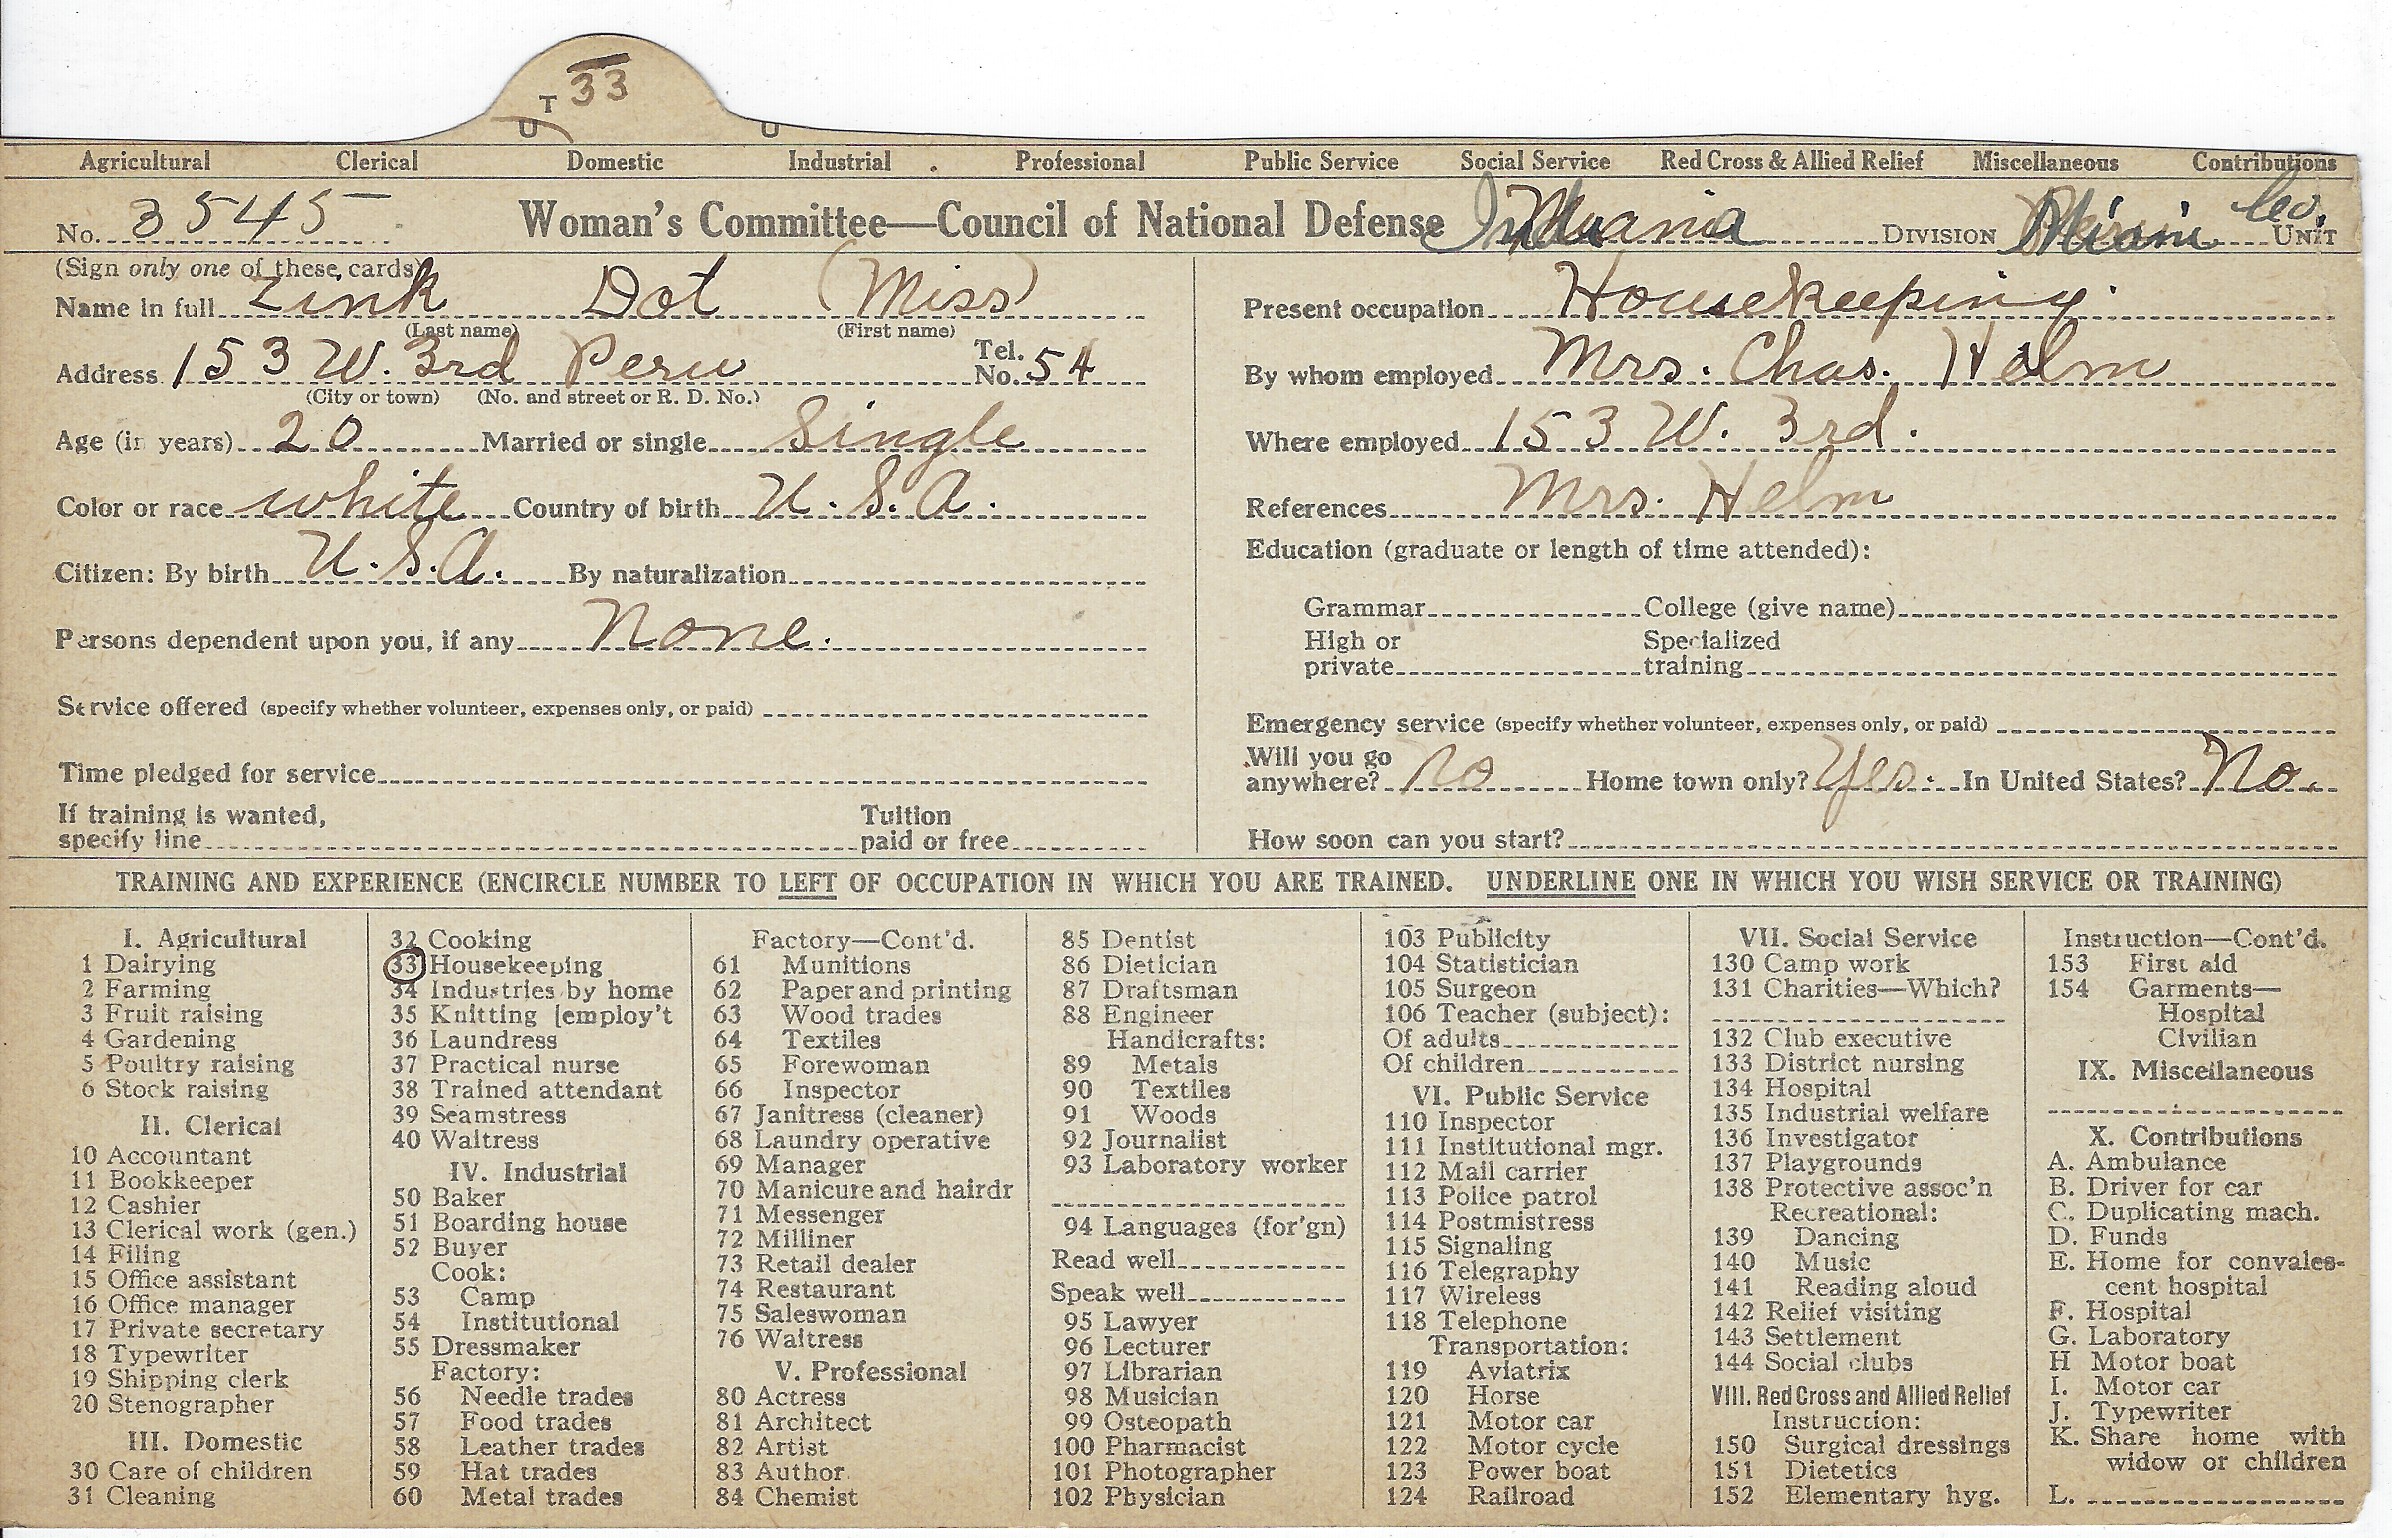 T 33
U U
Agricultural Clerical Domestic Industrial Professional Public Service Social Service Red Cross & Allied Relief Miscellaneous Contributions
No. 3545 Woman's Committee—Council of National Defense Indiana DIVISION Miami Co. UNIT
(Sign only one of these cards)
Name in full Zink Dot (Miss)
(Last name) (First name)
Address 153 W. 3rd Peru Tel. No. 54
(City or town) (No. and street or R. D. No.)
Age (in years) 20 Married or single Single
Color or race white Country of birth U.S.A.
Citizen: By birth U.S.A. By naturalization
Persons dependent upon you, if any None.
Service offered (specify whether volunteer, expenses only, or paid)
Time pledged for service
If training is wanted,
specify line
Tuition
paid or free
Present occupation Housekeeping.
By whom employed Mrs. Chas. Helm
Where employed 153 W. 3rd.
References Mrs. Helm
Education (graduate or length of time attended):
Grammar College (give name)
High or
private
Specialized
training
Emergency service (specify whether volunteer, expenses only, or paid)
Will you go
anywhere? No Home town only? Yes. In United States? No.
How soon can you start?
TRAINING AND EXPERIENCE (ENCIRCLE NUMBER TO LEFT OF OCCUPATION IN WHICH YOU ARE TRAINED. UNDERLINE ONE IN WHICH YOU WISH SERVICE OR TRAINING)
I. Agricultural
1 Dairying
2 Farming
3 Fruit raising
4 Gardening
5 Poultry raising
6 Stock raising
II. Clerical
10 Accountant
11 Bookkeeper
12 Cashier
13 Clerical work (gen.)
14 Filing
15 Office assistant
16 Office manager
17 Private secretary
18 Typewriter
19 Shipping clerk
20 Stenographer
III. Domestic
30 Care of children
31 Cleaning
32 Cooking
33 Housekeeping
34 Industries by home
35 Knitting [employ't
36 Laundress
37 Practical nurse
38 Trained attendant
39 Seamstress
40 Waitress
IV. Industrial
50 Baker
51 Boarding house
52 Buyer
Cook:
53 Camp
54 Institutional
55 Dressmaker
Factory:
56 Needle trades
57 Food trades
58 Leather trades
59 Hat trades
60 Metal trades
Factory—Cont'd.
61 Munitions
62 Paper and printing
63 Wood trades
64 Textiles
65 Forewoman
66 Inspector
67 Janitress (cleaner)
68 Laundry operative
69 Manager
70 Manicure and hairdr
71 Messenger
72 Milliner
73 Retail dealer
74 Restaurant
75 Saleswoman
76 Waitress
V. Professional
80 Actress
81 Architect
82 Artist
83 Author
84 Chemist
85 Dentist
86 Dietician
87 Draftsman
88 Engineer
Handicrafts:
89 Metals
90 Textiles
91 Woods
92 Journalist
93 Laboratory worker
94 Languages (for'gn)
Read well
Speak well
95 Lawyer
96 Lecturer
97 Librarian
98 Musician
99 Osteopath
100 Pharmacist
101 Photographer
102 Physician
103 Publicity
104 Statistician
105 Surgeon
106 Teacher (subject):
Of adults
Of children
VI. Public Service
110 Inspector
111 Institutional mgr.
112 Mail carrier
113 Police patrol
114 Postmistress
115 Signaling
116 Telegraphy
117 Wireless
118 Telephone
Transportation:
119 Aviatrix
120 Horse
121 Motor car
122 Motor cycle
123 Power boat
124 Railroad
VII. Social Service
130 Camp work
131 Charities—Which?
132 Club executive
133 District nursing
134 Hospital
135 Industrial welfare
136 Investigator
137 Playgrounds
138 Protective assoc'n
Recreational:
139 Dancing
140 Music
141 Reading aloud
142 Relief visiting
143 Settlement
144 Social clubs
VIII. Red Cross and Allied Relief
Instruction:
150 Surgical dressings
151 Dietetics
152 Elementary hyg.
Instruction—Cont'd.
153 First aid
154 Garments—
Hospital
Civilian
IX. Miscellaneous
X. Contributions
A. Ambulance
B. Driver for car
C. Duplicating mach.
D. Funds
E. Home for convales-
cent hospital
F. Hospital
G. Laboratory
H Motor boat
I. Motor car
J. Typewriter
K. Share home with
widow or children
L.